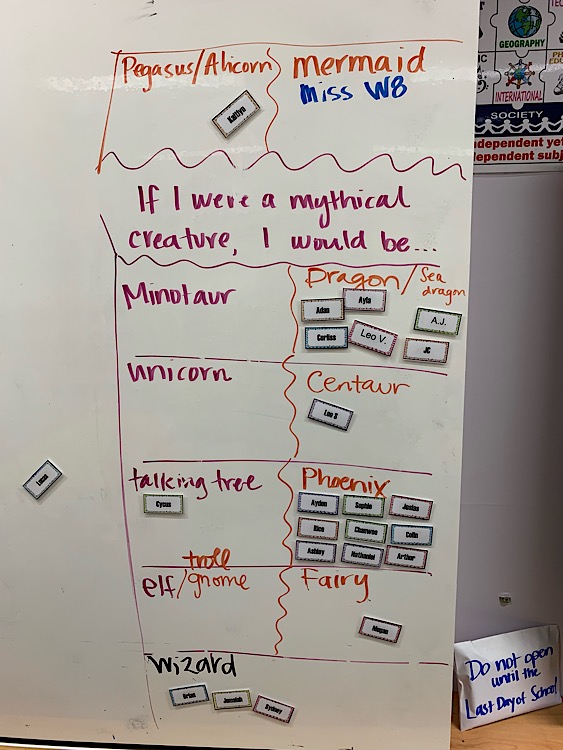 Pegasus/Alicorn
Kaitlyn
mermaid
Miss WB
If I were a mythical
creature, I would be...
Minotaur
Dragon/Sea
dragon
Adan
Ayla
A.J.
Corliss
Leo V.
JC
unicorn
Centaur
Leo S
talking tree
Cyrus
Phoenix
Ayden
Sophie
Josias
Rico
Chanwoo
Colin
Ashley
Nathaniel
Arthur
troll
elf/gnome
Fairy
Megan
wizard
Brian
Jeremiah
Sydney
Lucas
GEOGRAPHY
INTERNATIONAL
SOCIETY
ndependent yet
ependent subj
Do not open
until the
Last Day of School